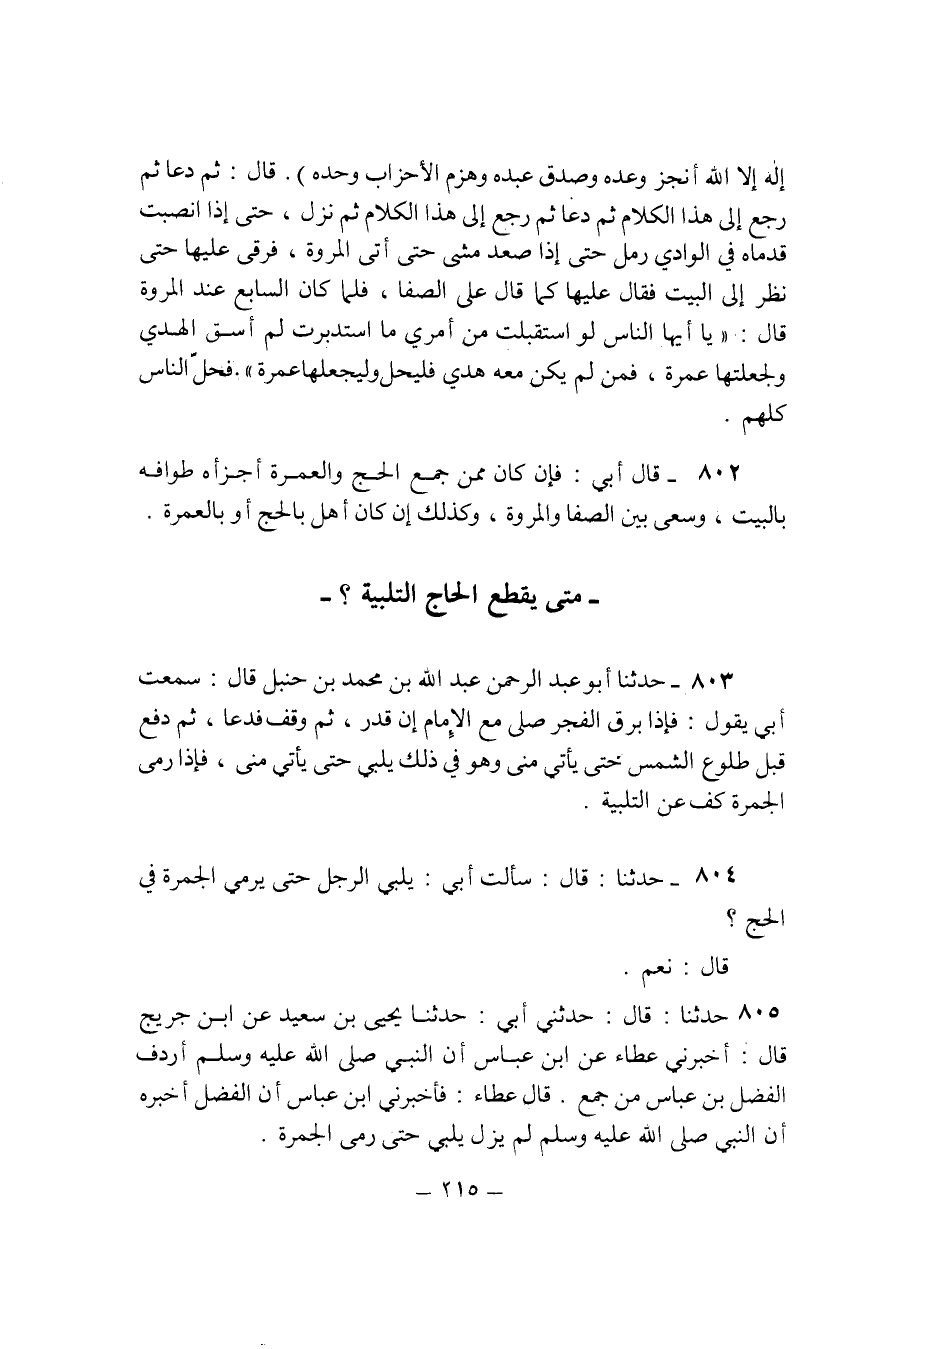 إله إلا الله أنجز وعده وصدق عبده وهزم الأحزاب وحده ) . قال : ثم دعا ثم
رجع إلى هذا الكلام ثم دعا ثم رجع إلى هذا الكلام ثم نزل ، حتى إذا انصبت
قدماه في الوادي رمل حتى إذا صعد مشى حتى أتى المروة ، فرقى عليها حتى
نظر إلى البيت فقال عليها كما قال على الصفا ، فلما كان السابع عند المروة
قال : « يا أيها الناس لو استقبلت من أمري ما استدبرت لم أسق الهدي
ولجعلتها عمرة ، فمن لم يكن معه هدي فليحل وليجعلها عمرة » . فحلّ الناس
كلهم .
٨٠٢ ـ قال أبي : فإن كان ممن جمع الحج والعمرة أجزأه طوافه
بالبيت ، وسعى بين الصفا والمروة ، وكذلك إن كان أهل بالحج أو بالعمرة .
ـ متى يقطع الحاج التلبية ؟ ـ
٨٠٣ ـ حدثنا أبو عبد الرحمن عبد الله بن محمد بن حنبل قال : سمعت
أبي يقول : فإذا برق الفجر صلى مع الإمام إن قدر ، ثم وقف فدعا ، ثم دفع
قبل طلوع الشمس حتى يأتي منى وهو في ذلك يلبي حتى يأتي منى ، فإذا رمى
الجمرة كف عن التلبية .
٨٠٤ ـ حدثنا : قال : سألت أبي : يلبي الرجل حتى يرمي الجمرة في
الحج ؟
قال : نعم .
٨٠٥ حدثنا : قال : حدثني أبي : حدثنا يحيى بن سعيد عن ابن جريج
قال : أخبرني عطاء عن ابن عباس أن النبي صلى الله عليه وسلم أردف
الفضل بن عباس من جمع . قال عطاء : فأخبرني ابن عباس أن الفضل أخبره
أن النبي صلى الله عليه وسلم لم يزل يلبي حتى رمى الجمرة .
ـ ٢١٥ ـ